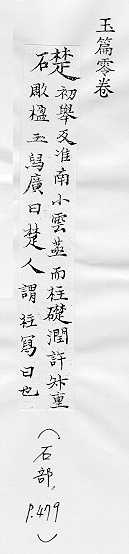 玉篇零卷
礎
初舉反淮南小雲蒸而柱礎潤許叔重
彫楹玉舄廣曰楚人謂柱舄曰也
(石部, P.479)